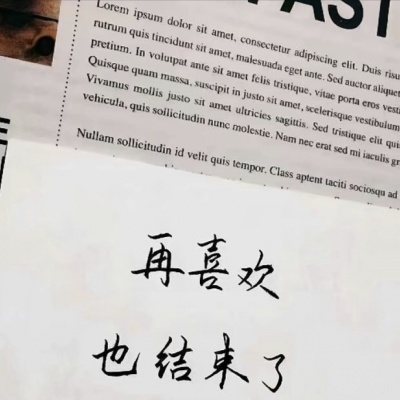 AST
Lorem ipsum dolor sit amet, consectetur adipiscing elit. Duis risu
rutrum quis tincidunt sit amet, malesuada eget ante. Sed auctor aliquet
pretium. In volutpat ante sit amet felis tristique, vitae porta eros vesti
Quisque quam massa, suscipit in justo sit amet, scelerisque vestibulum
Vivamus mollis justo sit amet ultricies sagittis. Sed tristique elit quis
vehicula, quis sollicitudin nunc molestie. Nam nec erat sed mi iaculis gr
Nullam sollicitudin id velit quis tempor. Class aptent taciti sociosqu ad
再喜欢
也结束了